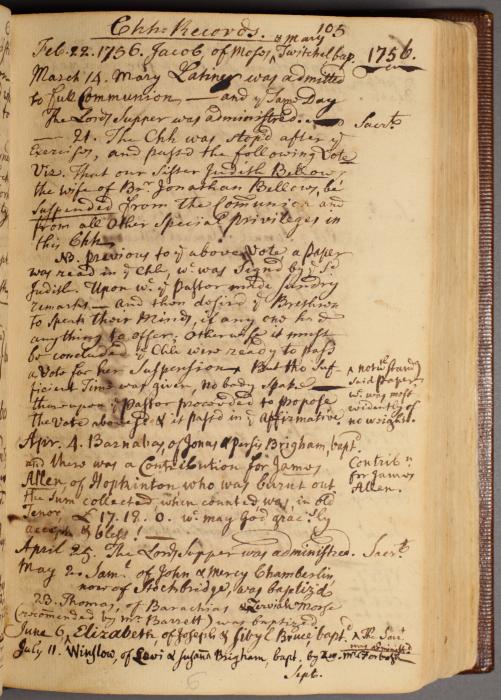 Chh: Records. 105
Feb. 22. 1756. Jacob, of Moses & Mary Twitchel bap. 1756.
March 14. Mary Latiner was admitted
to full Communion — and ye Same Day
The Lords Supper was administred. — Sacrt.
— 21. The Chh was stop'd after ye
Exercises, and pass'd the following Vote
Viz. That our Sister Judith Bellows
the wife of Br. Jonathan Bellows, be
Suspended from the Comunion and
from all other Special privileges in
this Chh.
NB. previous to ye above Vote a paper
was read in ye Chh, wc. was Sign'd by ye Sd
Judith. Upon wc. ye Pastor made Sundry
remarks — and then desir'd ye Brethren
to speak their Minds, if any one had
any thing to offer; Otherwise it must
be concluded ye Chh were ready to pass
a Vote for her Suspension. But tho Suf-
ficient Time was given, no body Spake —
thereupon ye Pastor proceeded to propose
the Vote aboves'd & it pass'd in ye Affirmative
^ notwthstandg
said Paper,
wc. was most
evidently of
no weight.
Apr. 4. Barnabas, of Jonas & Persis Brigham, bapt.
and there was a Contribution for James
Allen of Hopkinton who was burnt out
the Sum collected, when counted was in old
Tenor £ 17. 18. 0. wc. may God gracsly
accept & bless!
Contribn.
for James
Allen.
April 25. The Lords Supper was administred. Sacrt.
May 2. Saml. of John & Mercy Chamberlin,
now of Stockbridge, was baptiz'd
23. Thomas, of Barachias & Zerviah Morse
(recomended by Mr. Barrett) was baptized
June 6, Elizabeth of Joseph & Sibyl Bruce, bapt. & The Sacrt.
was administd
July 11. Winslow, of Levi & Susana Brigham, bapt. by Mr. Forbush
Sept.